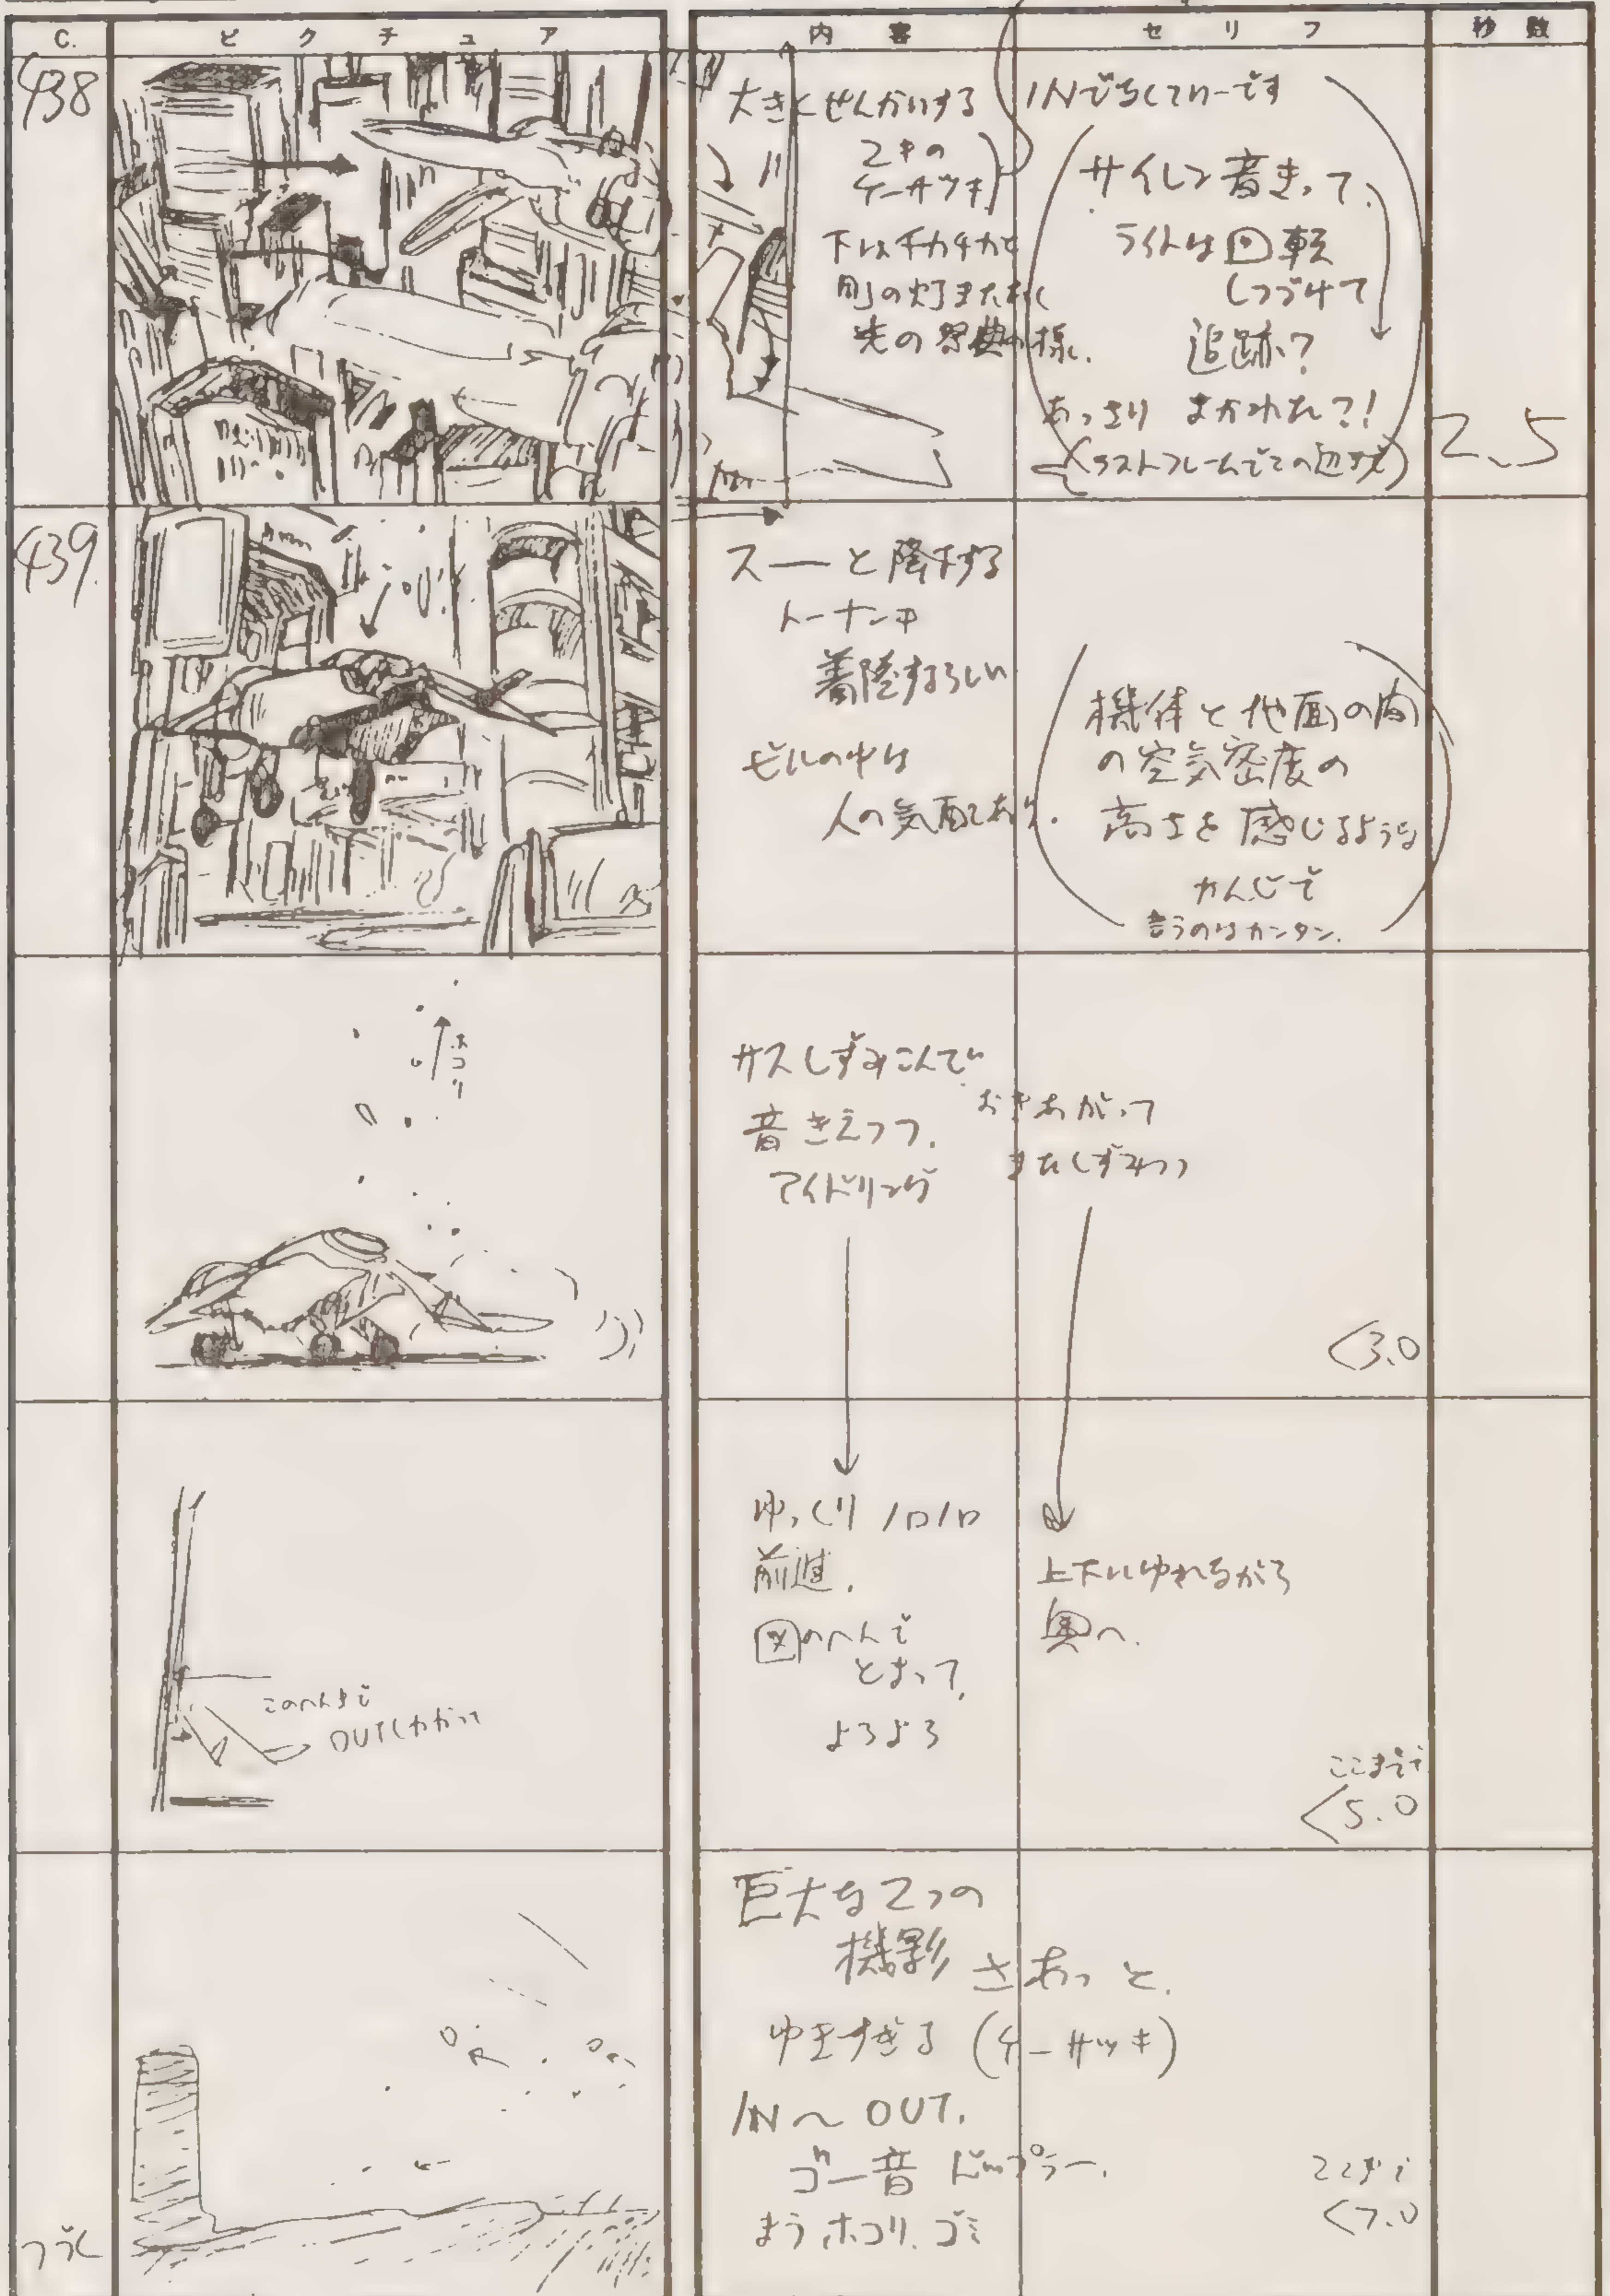 C.
ピクチュア
内容
セリフ
秒数
438
大きくせんかいする
2キの
ケーサツキ
下はチカチカと
町の灯またたく
光の祭典の様。
INでなくてOKです
サイレン音きって、
ライトは回転
しつづけて
追跡?
あっさり まかれた?!
(ラストフレームでこの辺まで)
2.5
439.
スーーと降下する
トーナン車
着陸するらしい
ビルの中は
人の気配あり。
機体と地面の間
の空気密度の
高さを感じるような
かんじで
言うのはカンタン。
ホコリ
サスしずみこんで
音きえつつ、
アイドリング
おきあがって
またしずみつつ
<3.0
このへんまで
OUTしかかって
ゆっくりノロノロ
前進。
図のへんで
とまって、
よろよろ
上下にゆれながら
奥へ。
ここまでで
<5.0
巨大な2つの
機影 さあっと、
ゆきすぎる (ケーサツキ)
IN～OUT.
ゴー音 ドップラー、
まう、ホコリ、ゴミ
ここまで
<7.0
つづく